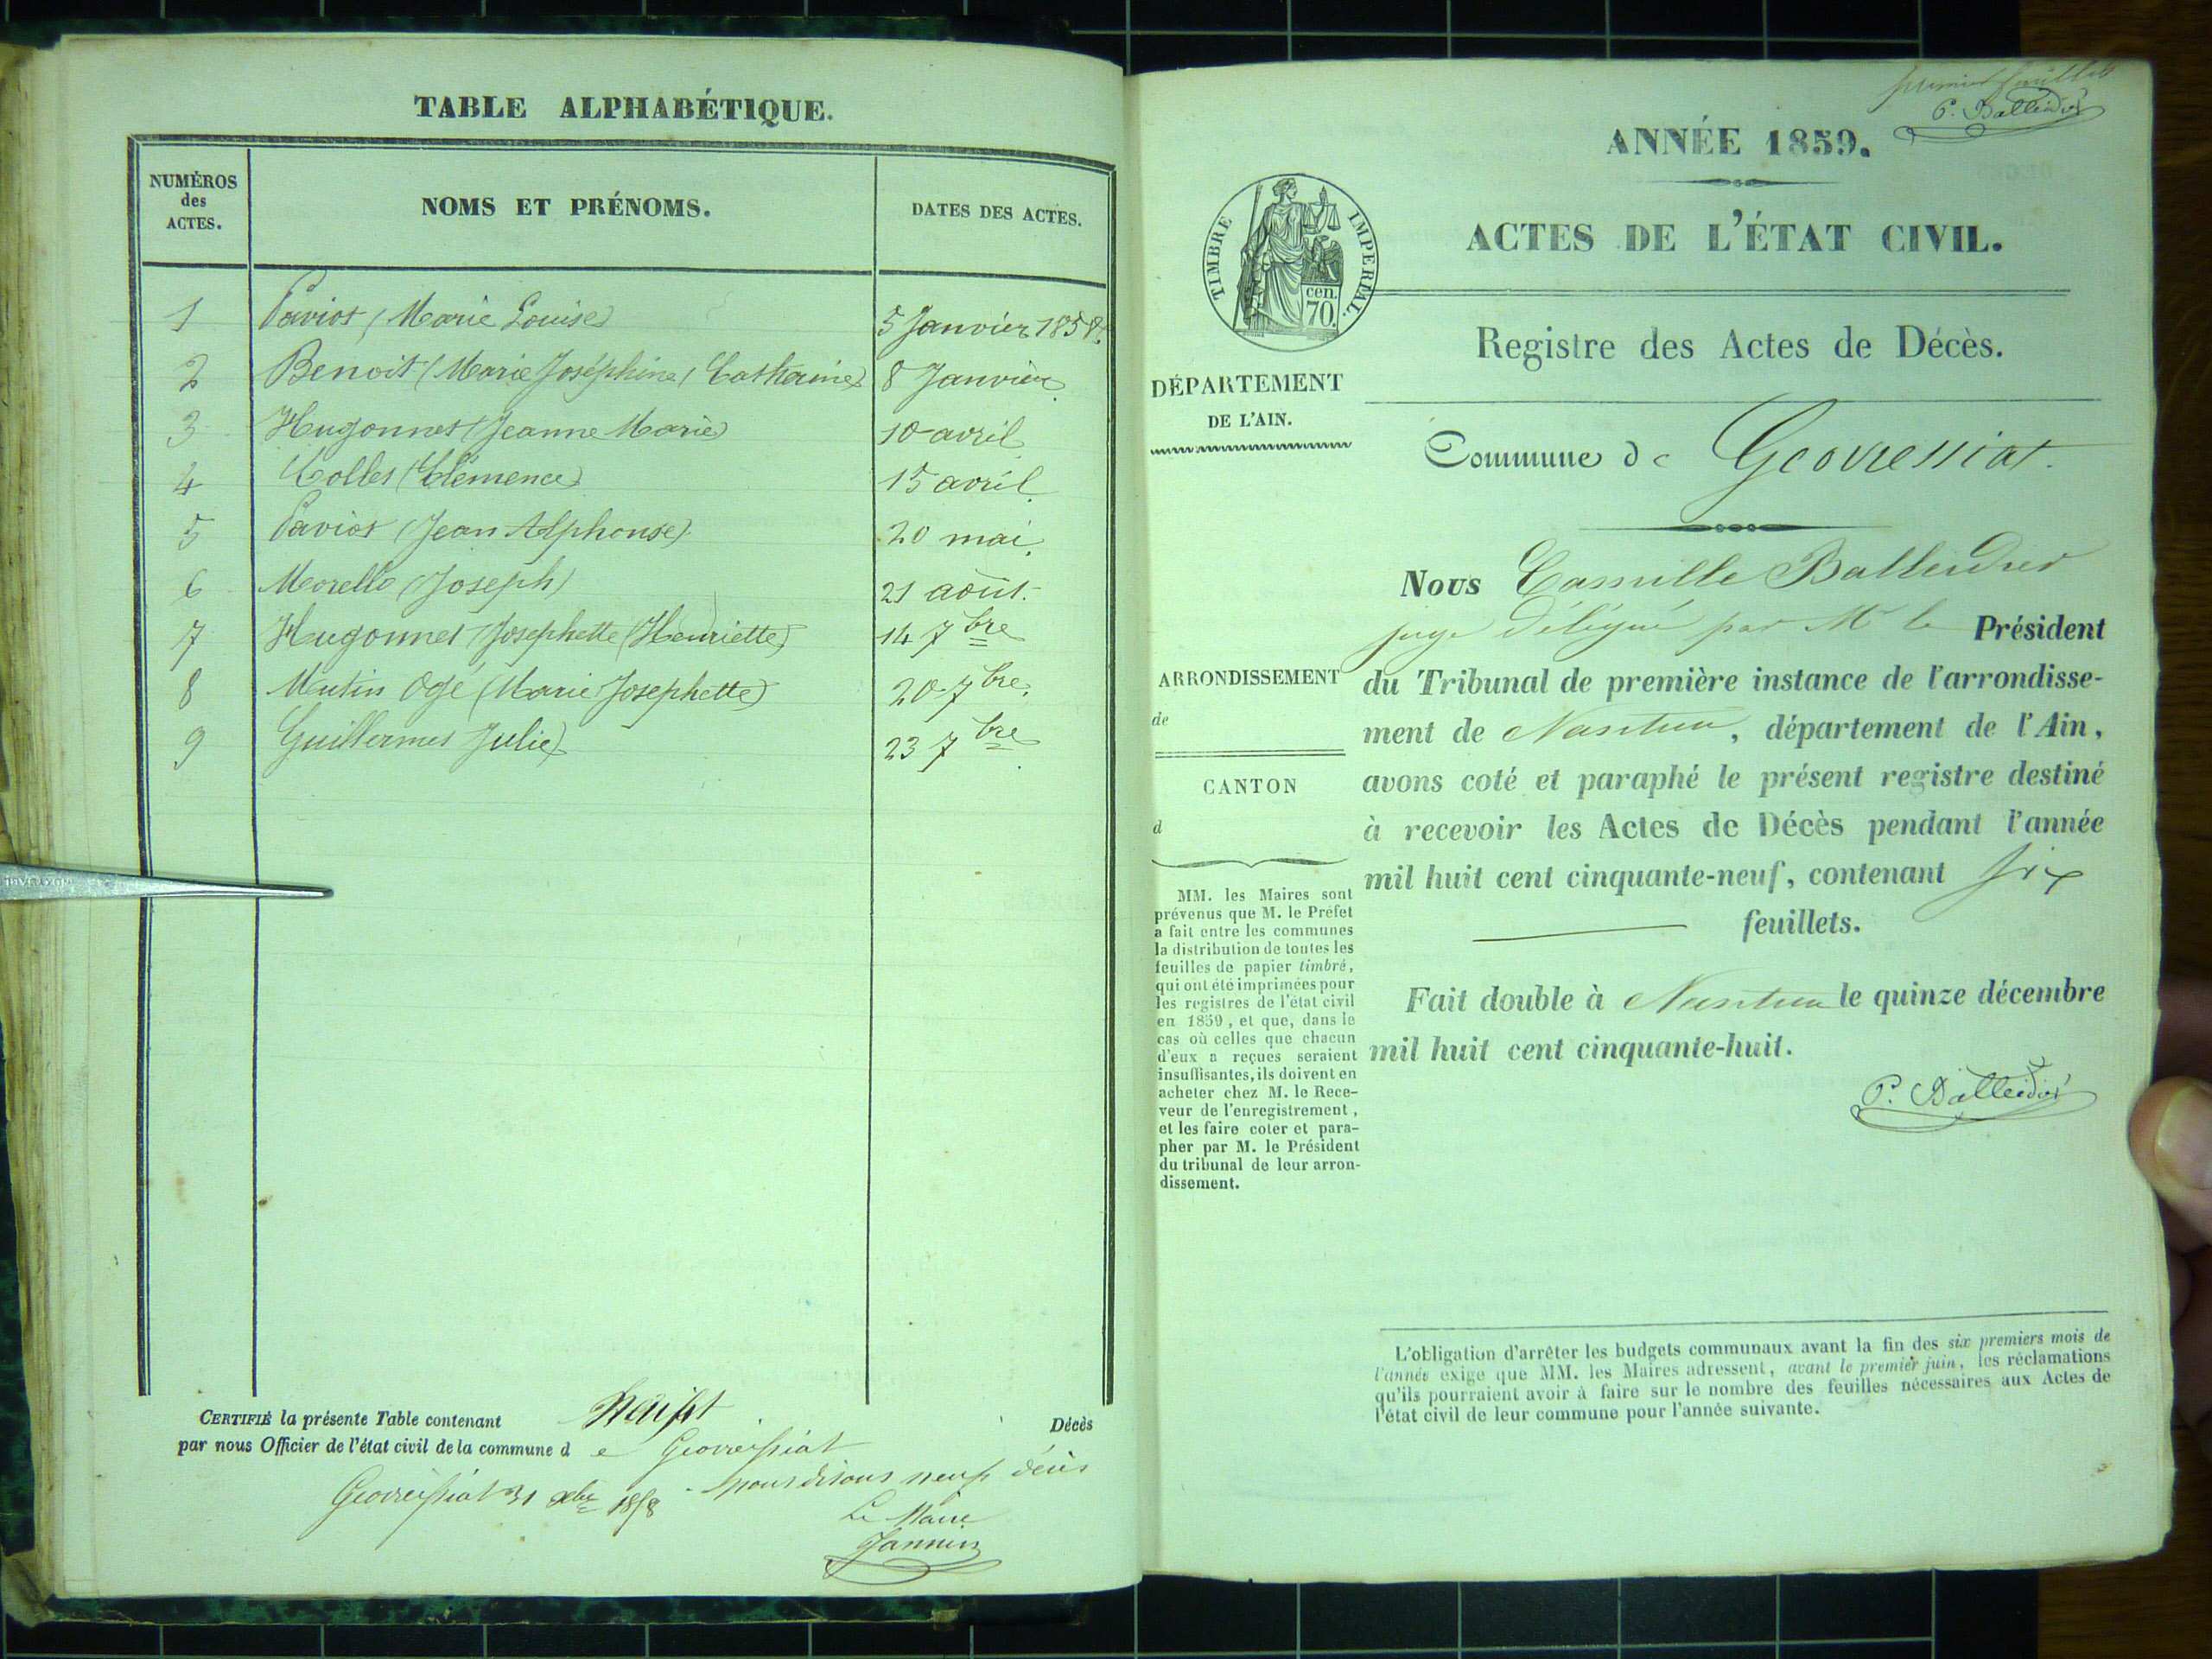 TABLE ALPHABÉTIQUE.
NUMÉROS des ACTES.
NOMS ET PRÉNOMS.
DATES DES ACTES.
1 Paviot (Marie Louise) 5 Janvier 1858.
2 Benoit (Marie Joséphine, Catherine) 8 Janvier.
3 Hugonnet (Jeanne Marie) 10 avril
4 Collet (Clémence) 15 avril.
5 Paviot (Jean Alphonse) 20 mai.
6 Morello (Joseph) 21 août.
7 Hugonnet (Josephette (Henriette) 14 7bre
8 Mutin Ogé (Marie Josephette) 20 7bre.
9 Guillermet Julie) 23 7bre.
CERTIFIÉ la présente Table contenant Décès
par nous Officier de l'état civil de la commune d e Geovreissiat
nous disons neuf décès
Geovreissiat 31 xbre 1858
Le Maire
Jannin
premier feuillet
C. Balleidier
ANNÉE 1859.
ACTES DE L'ÉTAT CIVIL.
TIMBRE IMPERIAL.
cen. 70.
Registre des Actes de Décès.
DÉPARTEMENT
DE L'AIN.
Commune de Geovressiat.
Nous Camille Balleidier
juge délégué par Mr le Président
ARRONDISSEMENT
de
du Tribunal de première instance de l'arrondisse-
ment de Nantua, département de l'Ain,
CANTON
d
avons coté et paraphé le présent registre destiné
à recevoir les Actes de Décès pendant l'année
mil huit cent cinquante-neuf, contenant six
feuillets.
Fait double à Nantua le quinze décembre
mil huit cent cinquante-huit.
C. Balleidier
MM. les Maires sont
prévenus que M. le Préfet
a fait entre les communes
la distribution de toutes les
feuilles de papier timbré,
qui ont été imprimées pour
les registres de l'état civil
en 1859, et que, dans le
cas où celles que chacun
d'eux a reçues seraient
insuffisantes, ils doivent en
acheter chez M. le Rece-
veur de l'enregistrement,
et les faire coter et para-
pher par M. le Président
du tribunal de leur arron-
dissement.
L'obligation d'arrêter les budgets communaux avant la fin des six premiers mois de
l'année exige que MM. les Maires adressent, avant le premier juin, les réclamations
qu'ils pourraient avoir à faire sur le nombre des feuilles nécessaires aux Actes de
l'état civil de leur commune pour l'année suivante.